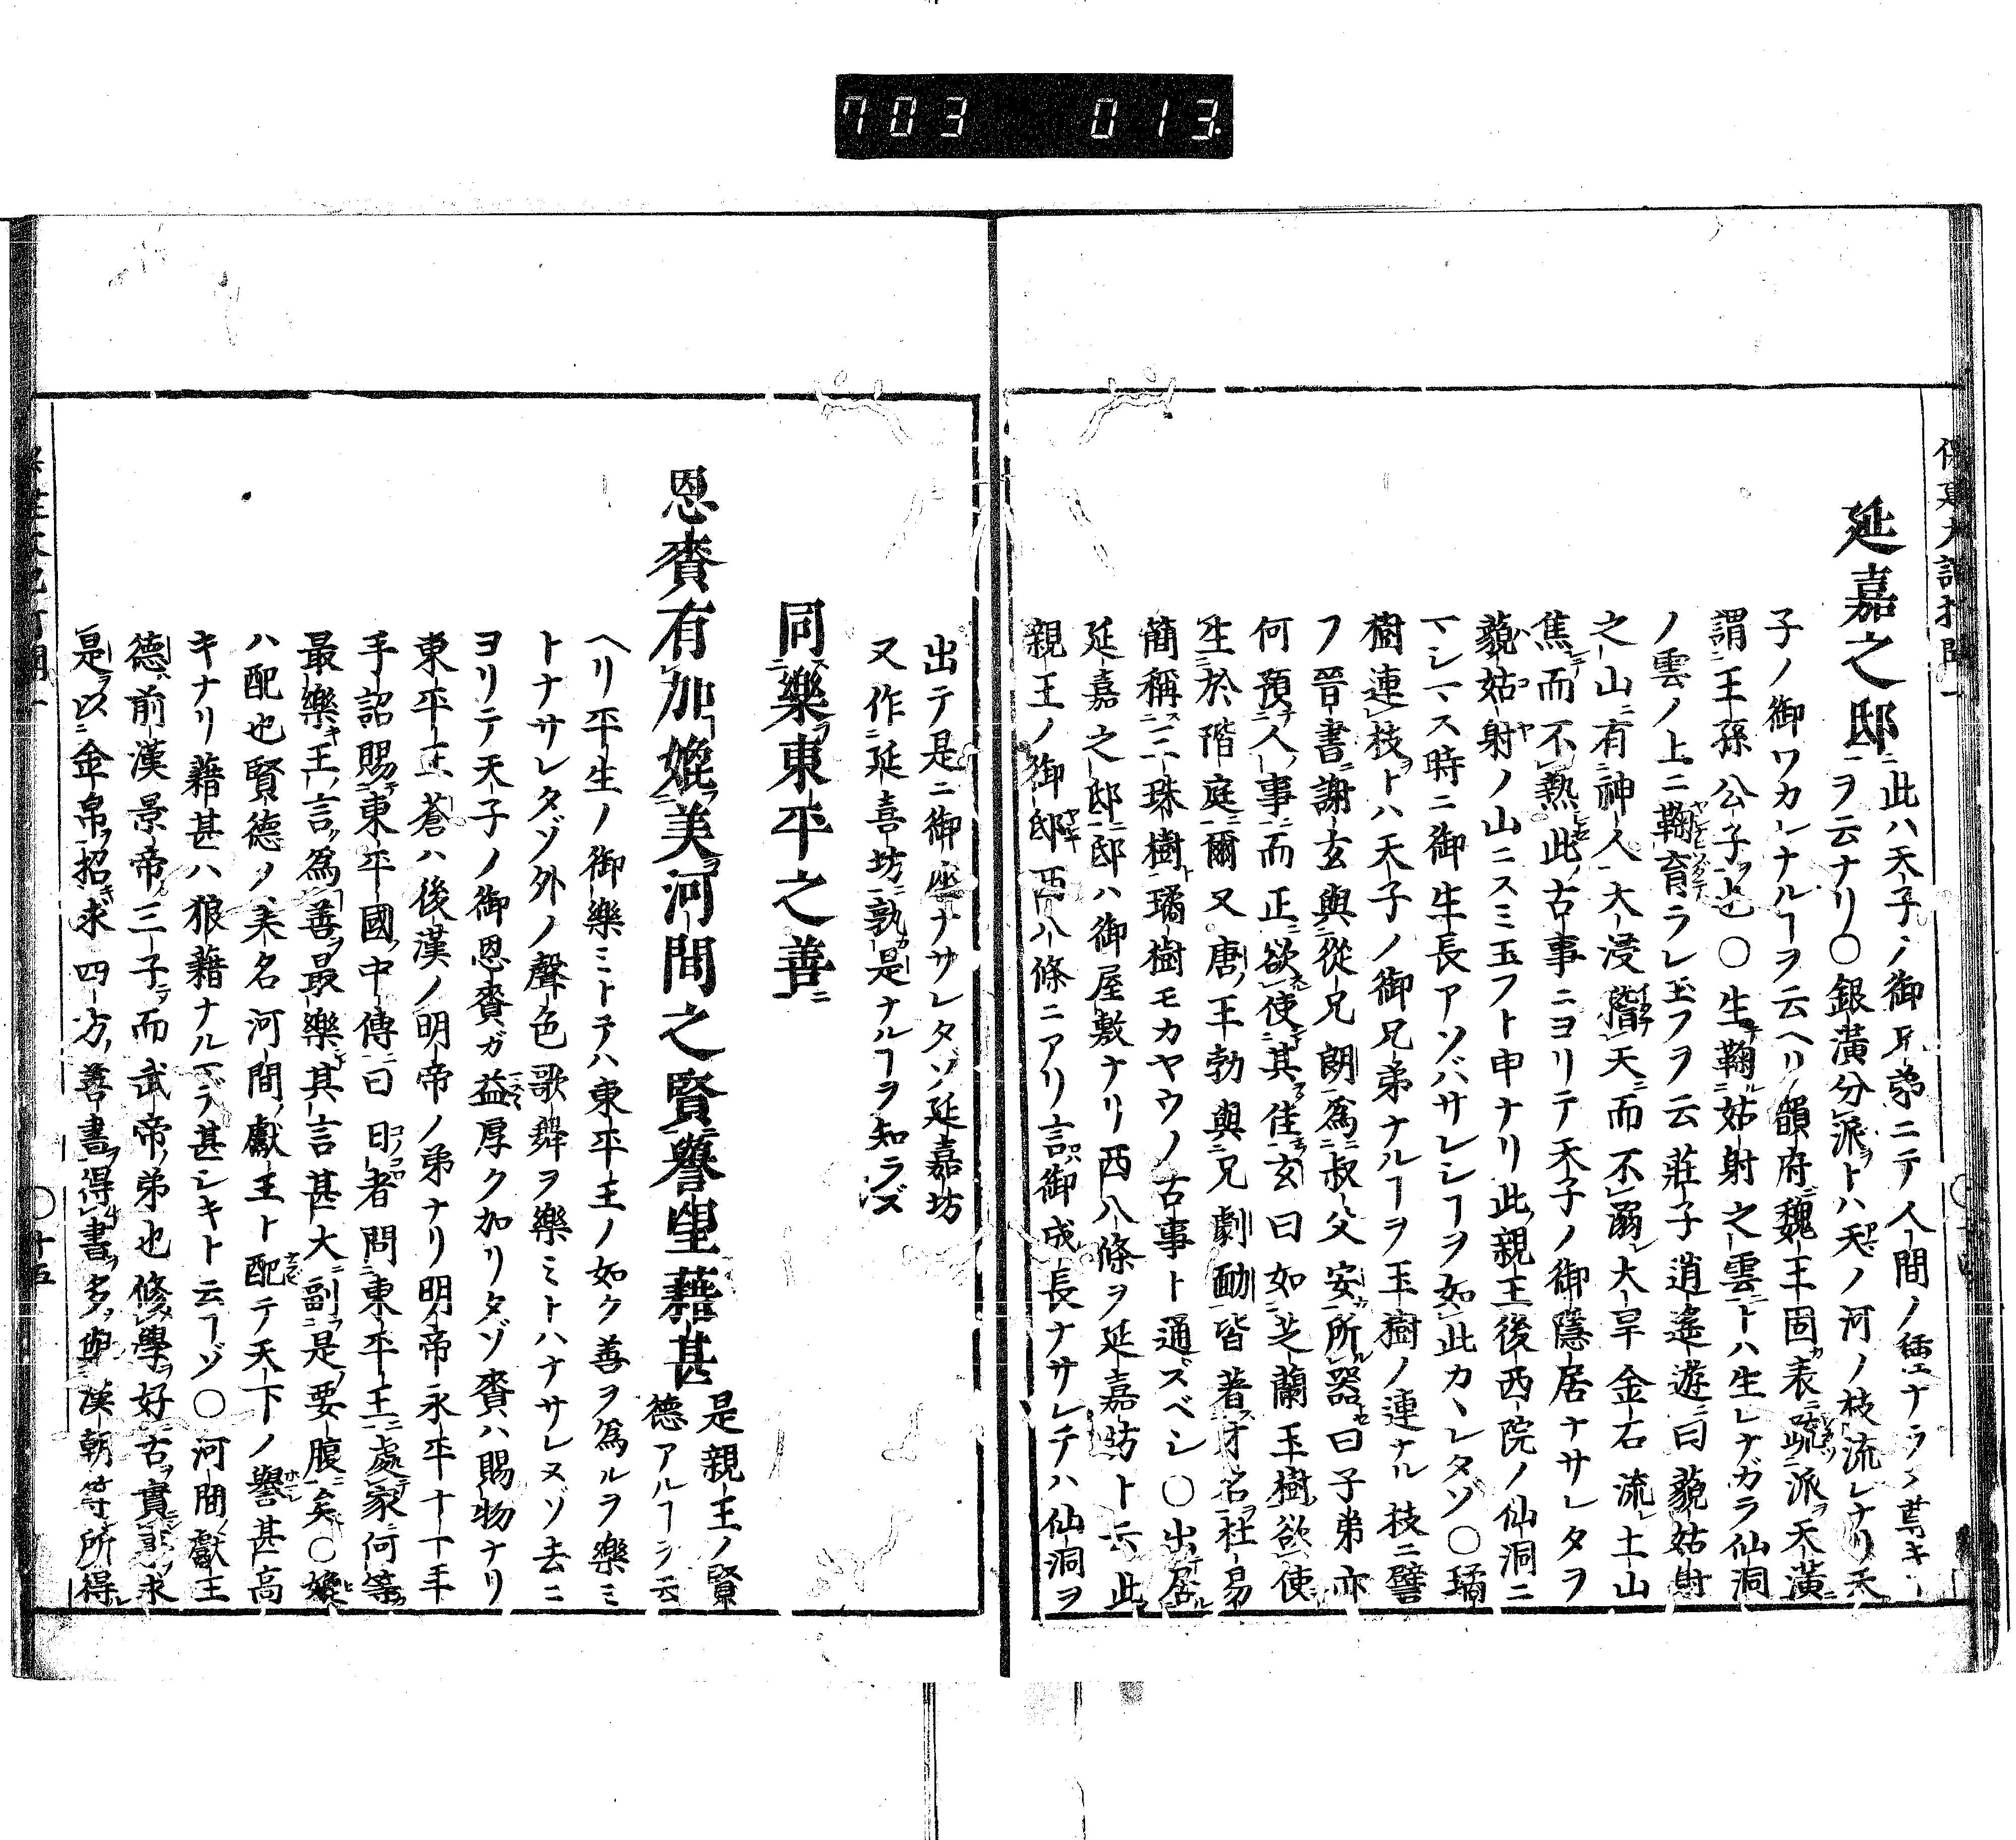 703 013
延嘉之邸
此ハ天子ノ御兄弟ニテ人間ノ種ナラヌ尊キ
ヲ云ナリ〇銀潢分派トハ天ノ河ノ枝流レナリ天
子ノ御ワカレナルヿヲ云ヘリ韻府魏王固表疏派天潢
謂王孫公子也〇生鞠姑射之雲トハ生レナガラ仙洞
ノ雲ノ上ニ鞠育ラレ玉フヲ云荘子逍遙遊曰藐姑射
之山有神人大浸稽天而不溺大旱金石流土山
焦而不熱此古事ニヨリテ天子ノ御隱居ナサレタヲ
藐姑射ノ山ニスミ玉フト申ナリ此親王後西院ノ仙洞ニ
マシマス時ニ御生長アソバサレシヿヲ如此カヽレタゾ〇璚
樹連枝トハ天子ノ御兄弟ナルヿヲ玉樹ノ連ナル枝ニ譬
フ晉書謝玄與從兄朗爲叔父安所器曰子弟亦
何預人事而正欲使其佳玄曰如芝蘭玉樹欲使
生於階庭爾又唐王勃與兄劇勔皆著才名杜易
簡稱三珠樹璚樹モカヤウノ古事ト通ズベシ〇出居
延嘉之邸邸ハ御屋敷ナリ西八條ヲ延嘉坊ト云此
親王ノ御邸西八條ニアリ言御成長ナサレテハ仙洞ヲ
出テ是ニ御座ナサレタゾ延嘉坊
又作延喜坊孰是ナルヿヲ知ラズ
同樂東平之善
恩賚有加媲美河間之賢譽望藉甚
是親王ノ賢
德アルヿヲ云
ヘリ平生ノ御樂ミトテハ東平王ノ如ク善ヲ爲ルヲ樂ミ
トナサレタゾ外ノ聲色歌舞ヲ樂ミトハナサレヌゾ去ニ
ヨリテ天子ノ御恩賚ガ益厚ク加リタゾ賚ハ賜物ナリ
東平王蒼ハ後漢ノ明帝ノ弟ナリ明帝永平十一年
手詔賜東平國中傳曰日者問東平王處家何等
最樂王言爲善最樂其言甚大副是要腹矣〇媲
ハ配也賢德ノ美名河間獻王ト配テ天下ノ譽甚高
キナリ藉甚ハ狼藉ナルマデ甚シキト云ヿゾ〇河間獻王
德前漢景帝三子而武帝弟也修學好古實事求
是以金帛招求四方善書得書多與漢朝等所得
〇十五